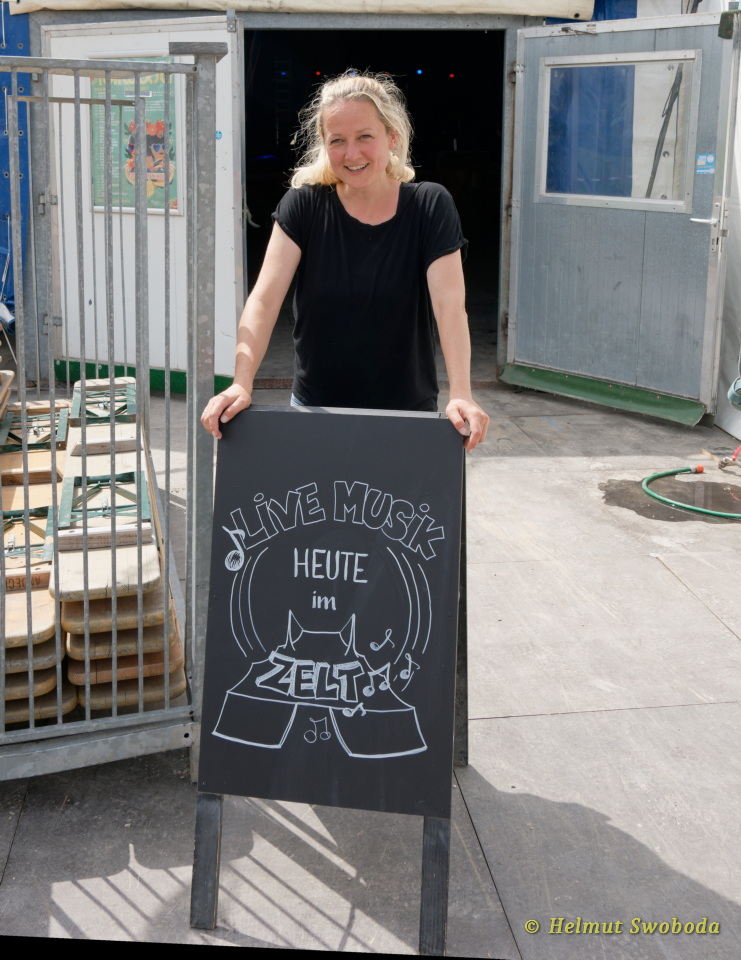 LiVE MUSiK
HEUTE
im
ZELT
© Helmut Swoboda